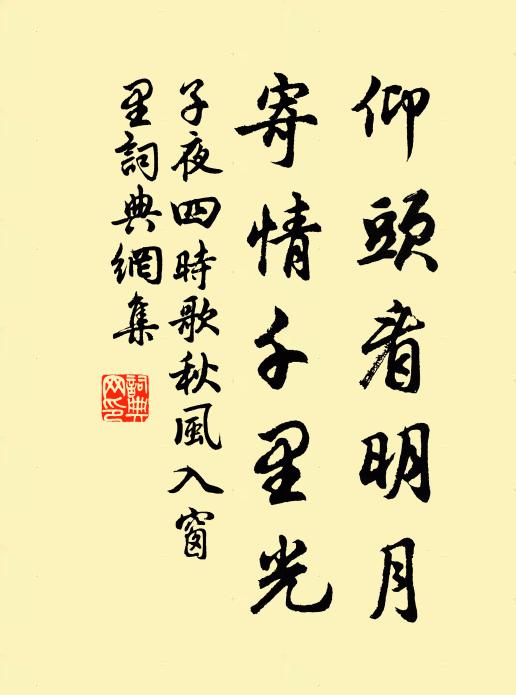 仰頭看明月
寄情千里光
子夜四時歌秋風入窗
里詞典網集
詞典
网印